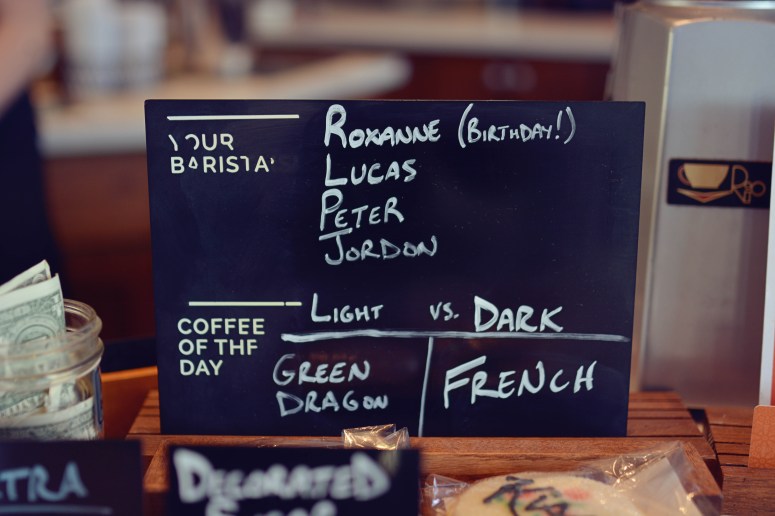 YOUR
BARISTA'
ROXANNE (BIRTHDAY!)
LUCAS
PETER
JORDON
COFFEE
OF THF
DAY
LIGHT vs. DARK
GREEN
DRAGON
FRENCH
DECORATED